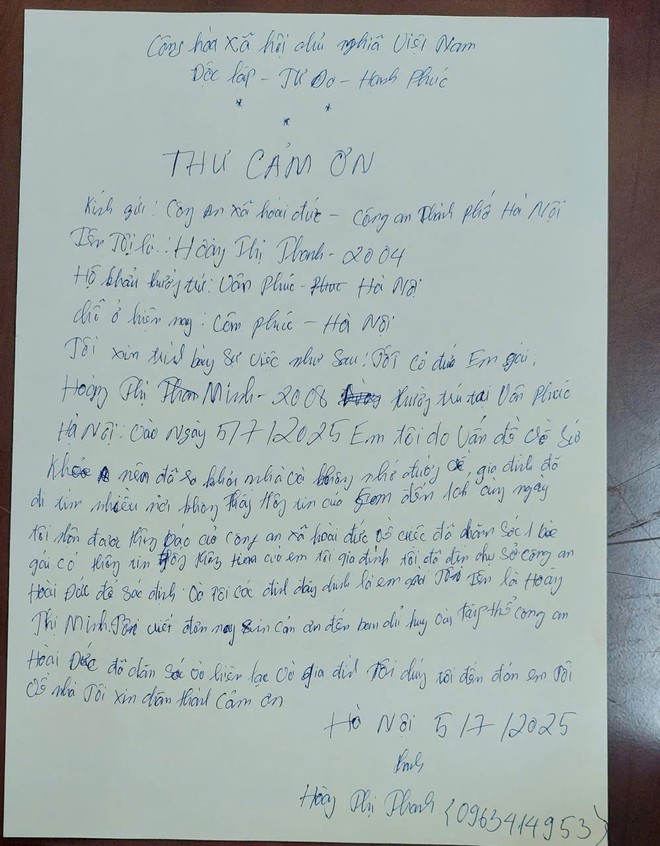 Cộng hòa xã hội chủ nghĩa Việt Nam
Độc lập - Tự Do - Hạnh Phúc
* * *
THƯ CẢM ƠN
Kính gửi: Công an xã hoài đức - Công an Thành phố Hà Nội
Tên Tôi là: Hoàng Thị Thanh - 2004
Hộ khẩu thường trú: Vân Phúc - Hà Nội
chỗ ở hiện nay: phúc - Hà Nội
Tôi xin trình bày sự việc như sau: Tôi có đứa Em gái:
Hoàng Thị Minh - 2008 thường trú tại Vân Phúc
Hà Nội: vào Ngày 5/7/2025 Em tôi do vấn đề về sứ
Khỏe nên đã ra khỏi nhà và không nhớ đường về, gia đình đã
đi tìm nhiều nơi không thấy thông tin của em đến 1ch cùng ngày
tôi nhận được thông báo của Công an xã hoài đức về việc đã chăm sóc 1 bé
gái có thông tin giống em tôi gia đình tôi đã đến trụ sở công an
Hoài Đức để xác định và tôi xác định đây chính là em gái Tôi Tên là Hoàng
Thị Minh. Tôi viết đơn này xin cảm ơn đến ban chỉ huy và tập thể công an
Hoài Đức đã chăm sóc và liên lạc với gia đình Tôi tôi đến đón em Tôi
về nhà Tôi xin chân thành cảm ơn
Hà Nội 5/7/2025
Thanh
Hoàng Thị Thanh {0963414953}